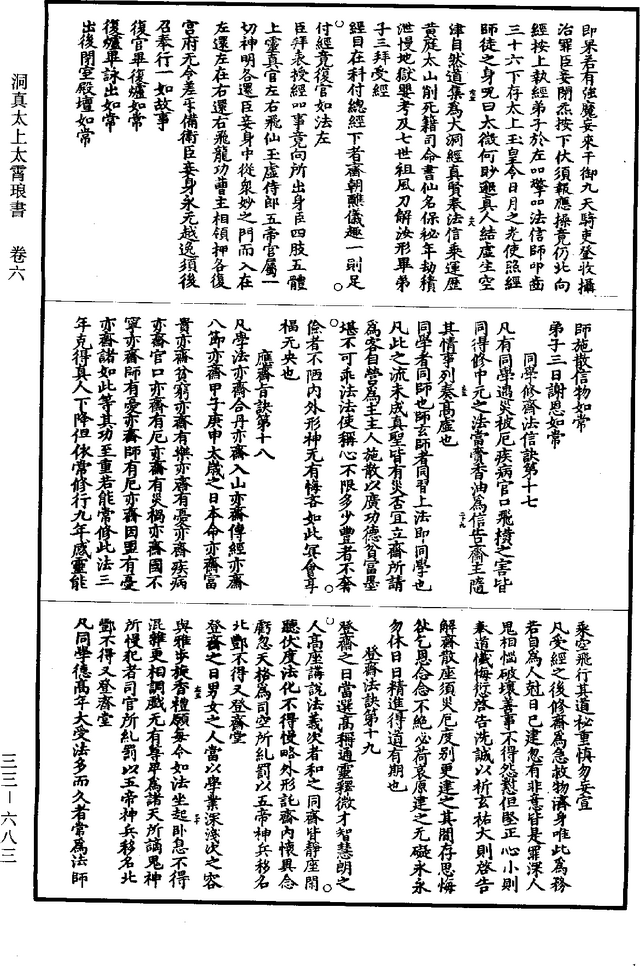 即杲若有強魔妄來干御九天騎吏登收攝
治罪臣妾閉炁按下伏須報應操竟仍北向
經按上執經弟子於左叩擊叩法信師叩齒
三十六下存太上玉皇令日月之光使照經
師徒之身呪曰太微何眇邈真人結虛生空
津自然道集為大洞經真賢奉法信乘運歷
黃庭太山削死籍司命書仙名保祕年劫積
泄慢地獄嬰考及七世祖風刀解汝形畢弟
子三拜受經
經目在科付總經下者齋朝醮儀趣一則足
付經竟復官如法左
臣拜表授經叩事竟向所出身臣四肢五體
上靈真官左右飛仙玉虛侍郎五帝官屬一
切神明各還臣妾身中從衆妙之門而入在
左還左在右還右飛龍功曹主相領押各復
宮府元令差互備衛臣妾身永元越逸須後
召奉行一如故事
復官畢復爐如常
復爐畢詠出如常
出後閉室殿壇如常
洞真太上太霄琅書 卷六
師施散信物如常
弟子三日謝恩如常
同學修齋法信訣第十七
凡有同學遇災被厄疾病官口飛橫之害皆
同得修中元之法當賷香油為信告齋主隨
其情事列奏高虛也
同學者同師也師玄師者同習上法即同學也
凡此之流未成真聖皆有災否宜立齋所請
為客自營為主主人施散以廣功德貧富墨
堪不可乖法法使稱心不限多少豐者不奢
儉者不陋內外形神无有悔吝如此冥會享
福无央也
應齋旨訣第十八
凡學法亦齋合丹亦齋入山亦齋傳經亦齋
八節亦齋甲子庚申太歲之日本命亦齋富
貴亦齋貧窮亦齋有樂亦齋有憂亦齋疾病
亦齋官口亦齋有厄亦齋有災禍亦齋國不
寧亦齋師有憂亦齋師有厄亦齋因盟有憂
亦齋諸如此等其功至重若能常修此法三
年克得真人下降但依常修行九年感靈能
乘空飛行其道祕重慎勿妄宣
凡受經之後修齋為急救物濟身唯此為務
若自為人尅日已建忽有非意皆是罪深人
鬼相惱破壞善事不得怨懟但堅正心小則
奉道懺悔衍啓告洗誠以祈玄祐大則啓告
解齋散座須災厄度别更建之其間存思悔
欲乞恩念念不絕必荷哀原建之无礙永永
勿休日日精進得道有期也
登齋法訣第十九
登齋之日當選高稱通靈釋微才智慧朗之
人高座講說法義次者和之同齋皆靜座閉
聽伏度法化不得慢略外形訖齋內懷異念
虧忽天格為司空所糺罰以五帝神兵移名
北酆不得又登齋堂
登齋之日男女之人當以學業深淺次之容
與雅步旋香禮願每令如法坐起卧息不得
混雜更相調戲无有尊卑為諸天所謫鬼神
所慢犯者司官所糺罰以五帝神兵移名北
酆不得又登齋堂
凡同學德高年大受法多而久者當為法師
三三—六八三